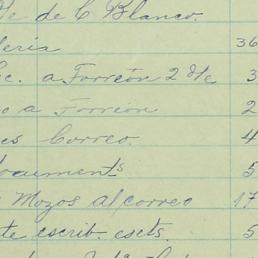 de de C Blanco.
leria 36
c. a Torreón 2 d/c 3
o a Torreon 2
es Correo. 4
documents 5
Mozos al correo 17
te escrib. escts. 5